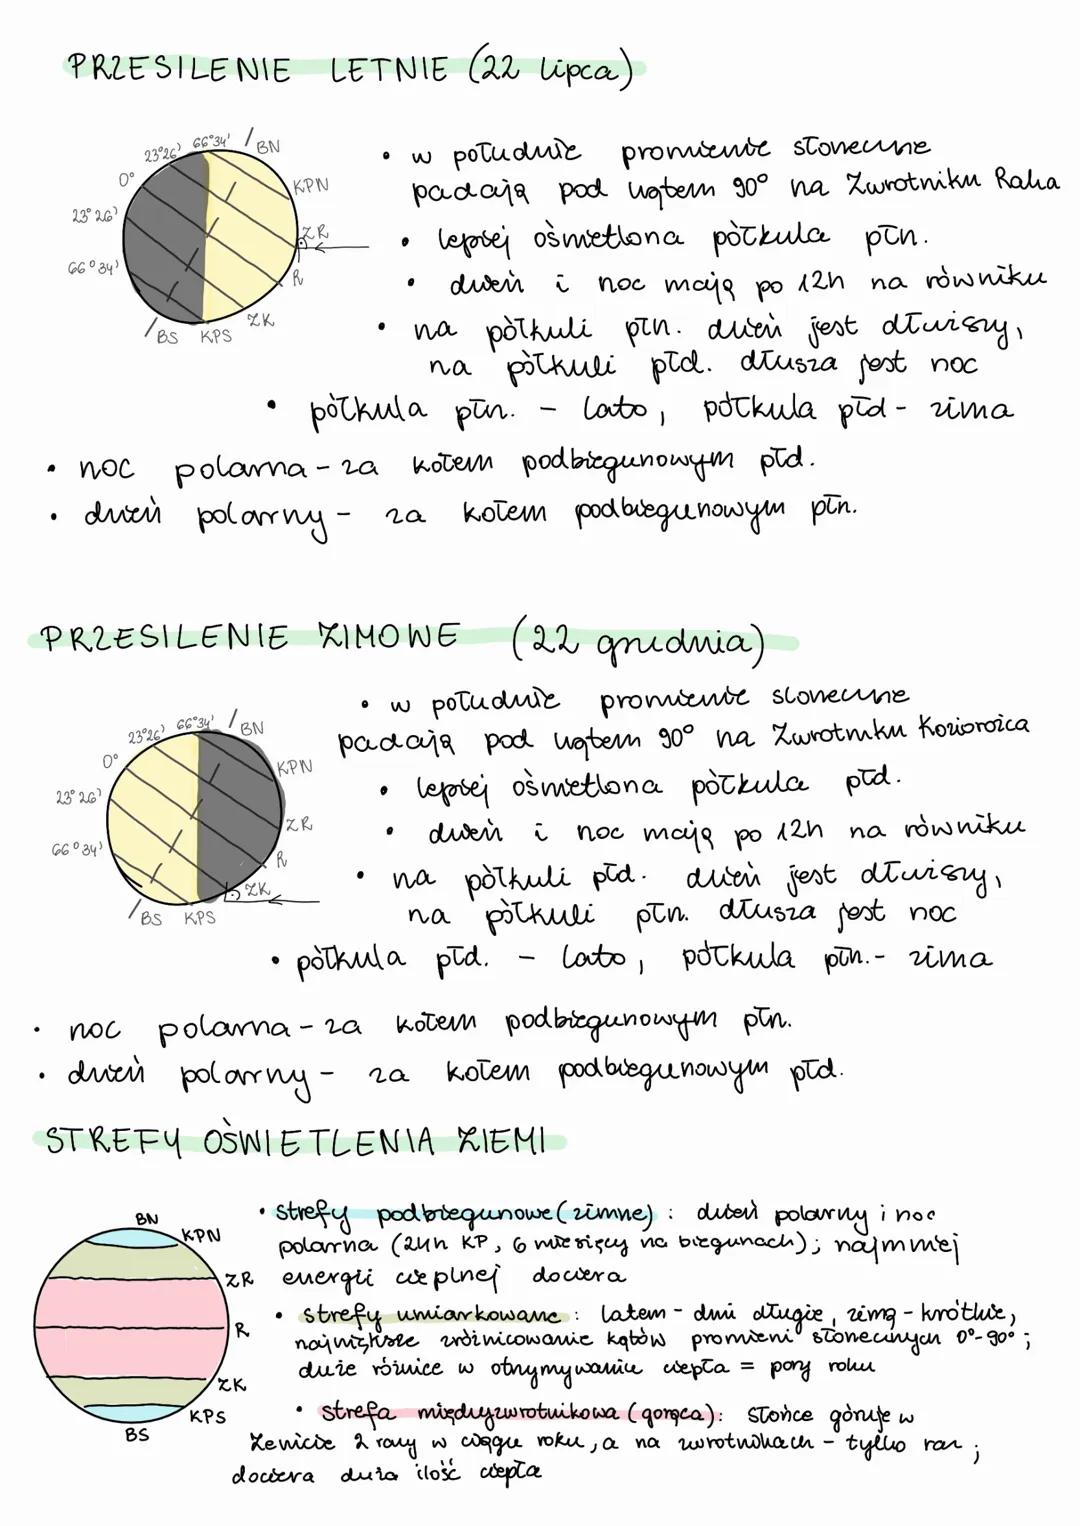 PRZESILENIE LETNIE (22 lipca)
23°26' 66°34' BN
0° KPN
23°26' ZR
66°34' R
BS KPS ZK
• w południe promienie słoneczne
padają pod kątem 90° na Zwrotniku Raka
• lepiej oświetlona półkula płn.
• dzień i noc mają po 12h na równiku
• na półkuli płn. dzień jest dłuższy,
na półkuli płd. dłuższa jest noc
• półkula płn. - lato, półkula płd - zima
• noc polarna - za kołem podbiegunowym płd.
• dzień polarny - za kołem podbiegunowym płn.
PRZESILENIE ZIMOWE (22 grudnia)
23°26' 66°34' BN
0° KPN
23°26' ZR
66°34' R
ZK
BS KPS
• w południe promienie słoneczne
padają pod kątem 90° na Zwrotniku Koziorożca
• lepiej oświetlona półkula płd.
• dzień i noc mają po 12h na równiku
• na półkuli płd. dzień jest dłuższy,
na półkuli płn. dłuższa jest noc
• półkula płd. - lato, półkula płn. - zima
• noc polarna - za kołem podbiegunowym płn.
• dzień polarny - za kołem podbiegunowym płd.
STREFY OŚWIETLENIA ZIEMI
BN
KPN
ZR
R
ZK
KPS
BS
• strefy podbiegunowe (zimne): dzień polarny i noc
polarna (24h KP, 6 miesięcy na biegunach); najmniej
energii cieplnej dociera
• strefy umiarkowane: latem - dni długie, zimą - krótkie,
największe zróżnicowanie kątów promieni słonecznych 0°-90°;
duże różnice w otrzymywaniu ciepła = pory roku
• strefa międzyzwrotnikowa (gorąca): Słońce góruje w
Zenicie 2 razy w ciągu roku, a na zwrotnikach - tylko raz;
dociera duża ilość ciepła